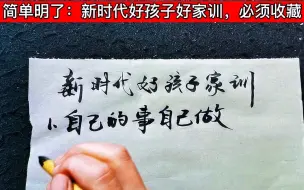 简单明了:新时代好孩子好家训,必须收藏
新时代好孩子家训
1、自己的事自己做